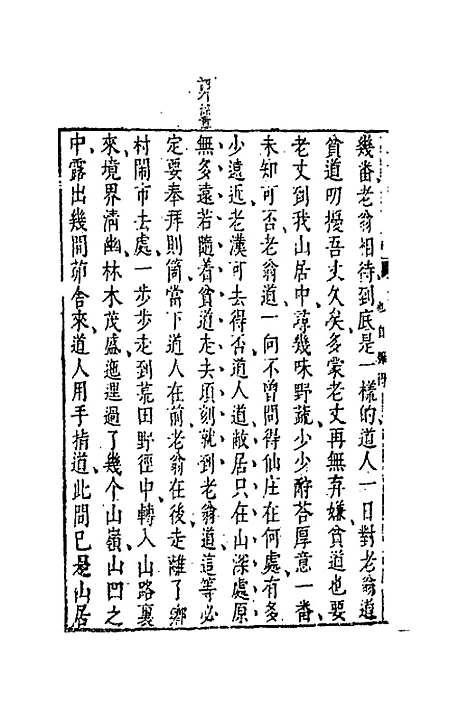 幾番老翁相待到底是一樣的道人一日對老翁道
貧道叨擾吾丈久矣多蒙老丈再無弃嫌貧道也要
老丈到我山居中尋幾味野蔬少少酧荅厚意一番
未知可否老翁道一向不曾問得仙庄在何處有多
少遠近老漢可去得否道人道敝居只在山深處原
無多遠若隨着貧道走去頃刻就到老翁道這等必
定要奉拜則箇當下道人在前老翁在後走離了鄉
村鬧市去處一步步走到荒田野徑中轉入山路裏
來境界清幽林木茂盛迤逞過了幾个山嶺山凹之
中露出幾間茆舍來道人用手指道此間已是山居